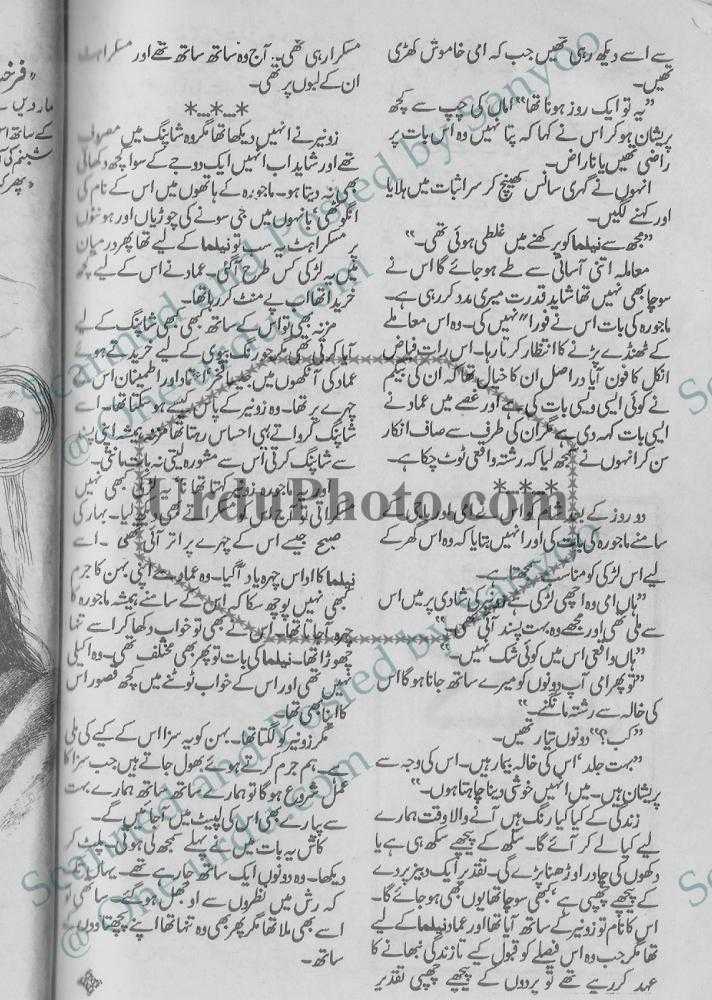 سے اسے دیکھ رہی تھیں جب کہ امی خاموش کھڑی
تھیں۔
”یہ تو ایک روز ہونا تھا“ اماں کی چپ سے کچھ
پریشان ہو کر اس نے کہا کہ پتا نہیں وہ اس بات پر
راضی تھیں یا ناراض۔
انہوں نے گہری سانس کھینچ کر سر اثبات میں ہلایا
اور کہنے لگیں۔
”مجھ سے نیلما کو پرکھنے میں غلطی ہوئی تھی۔“
معاملہ اتنی آسانی سے طے ہو جائے گا اس نے
سوچا بھی نہیں تھا شاید قدرت میری مدد کر رہی ہے۔
ماجورہ کی بات اس نے فورا“ نہیں کی۔ وہ اس معاملے
کے ٹھنڈے پڑنے کا انتظار کرتا رہا۔ اس رات فیاض
انکل کا فون آیا دراصل ان کا خیال تھا کہ ان کی بیگم
نے کوئی ایسی ویسی بات کی ہے اور غصے میں عماد نے
ایسی بات کہہ دی ہے مگر ان کی طرف سے صاف انکار
سن کر انہوں نے سمجھ لیا کہ رشتہ واقعی ٹوٹ چکا ہے۔
* * *
دو روز کے بعد اس نے امی اور باجی کے
سامنے ماجورہ کی بات کی اور انہیں بتایا کہ وہ اس گھر کے
لیے اس لڑکی کو مناسب سمجھتا ہے۔
”ہاں امی وہ اچھی لڑکی ہے زونیر کی شادی پر میں اس
سے ملی تھی اور مجھے وہ بہت پسند آئی تھی۔“
”ہاں واقعی اس میں کوئی شک نہیں۔“
”تو پھر امی آپ دونوں کو میرے ساتھ جانا ہو گا اس
کی خالہ سے رشتہ مانگنے۔“
”کب؟“ دونوں تیار تھیں۔
”بہت جلد‘ اس کی خالہ بیمار ہیں۔ اس کی وجہ سے
پریشان ہیں۔ میں انہیں خوشی دینا چاہتا ہوں۔“
زندگی کے کیا کیا رنگ ہیں آنے والا وقت ہمارے
لیے کیا لے کر آئے گا۔ سکھ کے پیچھے سکھ ہی ہے یا
دکھوں کی چادر اوڑھنا پڑے گی۔ تقدیر ایک دبیز پردے
کے پیچھے چھپی ہے‘ کبھی سوچا تھا یوں بھی ہو جائے گا۔
اس کا نام تو زونیر کے ساتھ آیا تھا اور عماد نیلما کے لیے
تھا مگر جب وہ اس فیصلے کو قبول کیے تا زندگی نبھانے کا
عہد کر رہے تھے تو پردوں کے پیچھے چھپی تقدیر
مسکرا رہی تھی۔ آج وہ ساتھ ساتھ تھے اور مسکراہٹ
ان کے لبوں پر تھی۔
* * *
زونیر نے انہیں دیکھا تھا مگر وہ شاپنگ میں مصروف
تھے اور شاید اب انہیں ایک دوجے کے سوا کچھ دکھائی
بھی نہ دیتا ہو۔ ماجورہ کے ہاتھوں میں اس کے نام کی
انگوٹھی‘ بانہوں میں جتی سونے کی چوڑیاں اور ہونٹوں
پر مسکراہٹ یہ سب تو نیلما کے لیے تھا پھر درمیان
میں یہ لڑکی کس طرح آ گئی۔ عماد نے اس کے لیے کچھ
خریدا تھا اب پے منٹ کر رہا تھا۔
مزنہ بھی تو اس کے ساتھ کبھی کبھی شاپنگ کے لیے
آیا کرتی تھی مگر جو رنگ بیوی کے لیے خریدتے ہوئے
عماد کی آنکھوں میں جیسا فخر‘ اعتماد اور اطمینان اس کے
چہرے پر تھا۔ وہ زونیر کے پاس کیسے ہو سکتا تھا۔ اسے
شاپنگ کرواتے یہی احساس رہتا تھا مزنہ ہمیشہ اپنی پسند
سے شاپنگ کرتی اس سے مشورہ لیتی نہ مانتی۔
اور ماجورہ زونیر کہتا تھا یہ لڑکی کبھی نہیں
مسکراتی تو آج اس کو مسکراتے بھی دیکھ لیا۔ بہار کی
صبح جیسے اس کے چہرے پر اتر آئی تھی۔ اسے
نیلما کا اداس چہرہ یاد آ گیا۔ وہ عماد سے اپنی بہن کا جرم
کبھی نہیں پوچھ سکا کہ اس کے سامنے ہمیشہ ماجورہ کا
چہرہ آ جاتا تھا۔ اس نے بھی تو خواب دکھا کر اسے تنہا
چھوڑا تھا۔ نیلما کی بات تو پھر بھی مختلف تھی۔ وہ اکیلی
نہیں تھی اور اس کے خواب ٹوٹنے میں کچھ قصور اس
کا اپنا بھی تھا۔
مگر زونیر کو لگتا تھا۔ بہن کو یہ سزا اس کے کیے کی ملی
ہے۔ ہم جرم کرتے ہوئے بھول جاتے ہیں جب سزا کا
عمل شروع ہو گا تو ہمارے ساتھ ساتھ ہمارے بہت
سے پیارے بھی اس کی لپیٹ میں آ جائیں گے۔
کاش یہ بات میں نے پہلے سمجھ لی ہوتی۔ پلٹ کر
دیکھا۔ وہ دونوں ایک ساتھ جا رہے تھے۔ یہاں تک
کہ رش میں نظروں سے اوجھل ہو گئے۔ ساتھی تو
اسے بھی ملا تھا مگر پھر بھی وہ تنہا تھا اپنے پچھتاووں کے
ساتھ۔
UrduPhoto.com